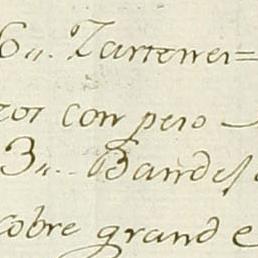 6,, Zartenes=
ros con peso —
3,, Bandej
cobre grand e